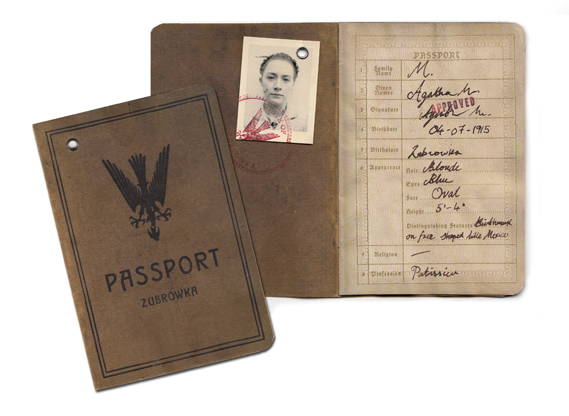 PASSPORT
ZUBROWKA
PASSPORT
1 Family Name M.
2 Given Names Agatha M.
3 Signature Agatha M.
APPROVED
4 Birthdate 04-07-1915
5 Birthplace Zubrowka
6 Appearance Hair Blonde
Eyes Blue
Face Oval
Height 5'-4"
Distinguishing Features Birthmark
on face shaped like Mexico
7 Religion —
8 Profession Patissier